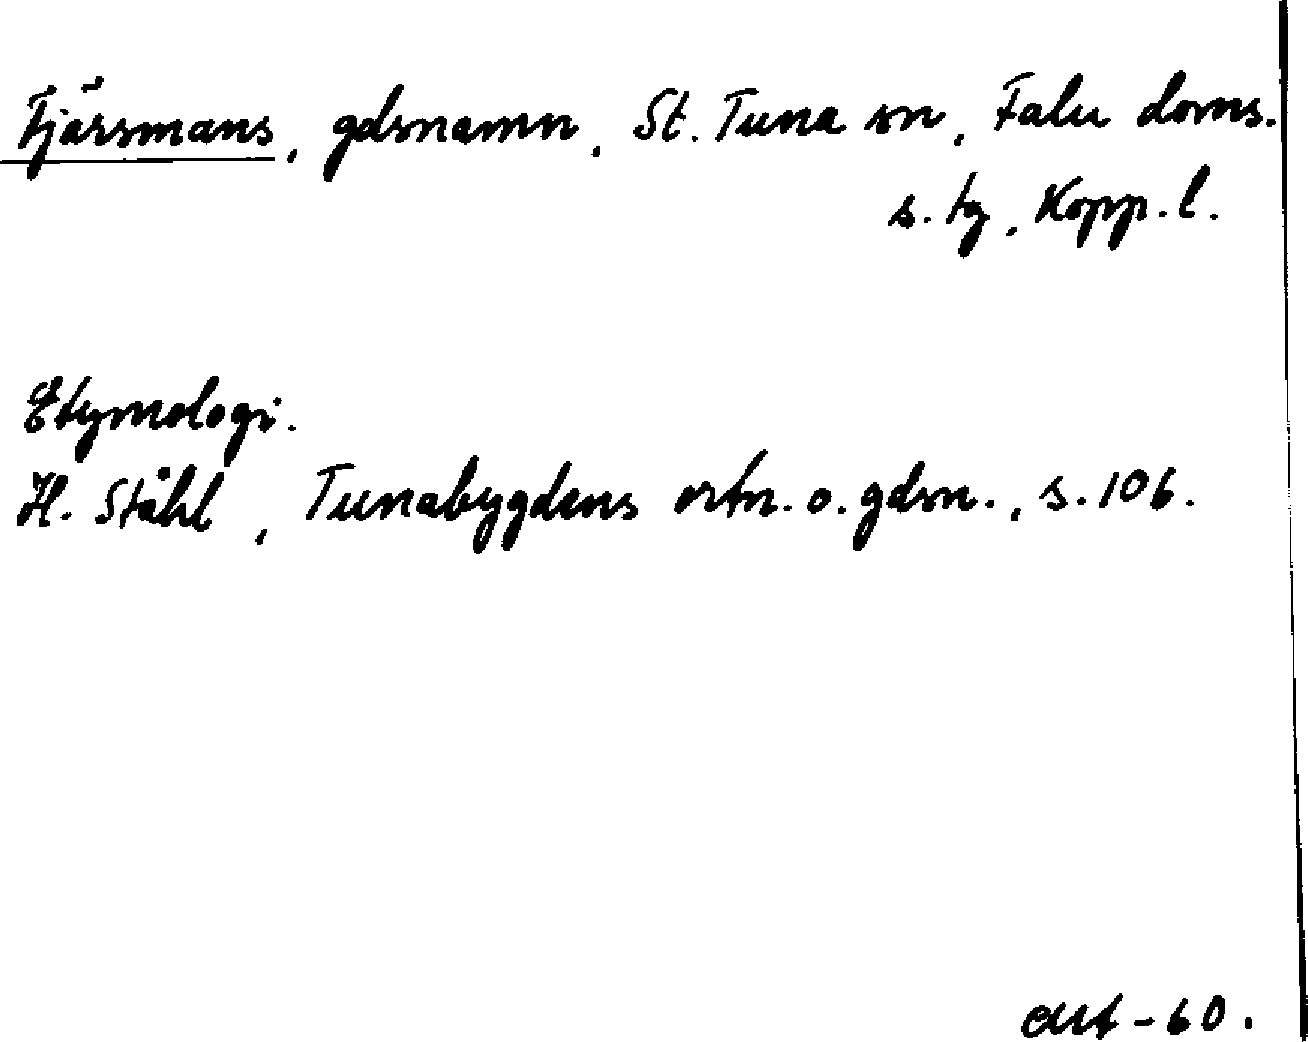 Fjärsmans, gdsnamn, St. Tuna sn, Falu doms.
s. tg, Kopp. l.
Etymologi.
H. Ståhl, Tunabygdens ortn. o. gdsn., s. 106.
-60.